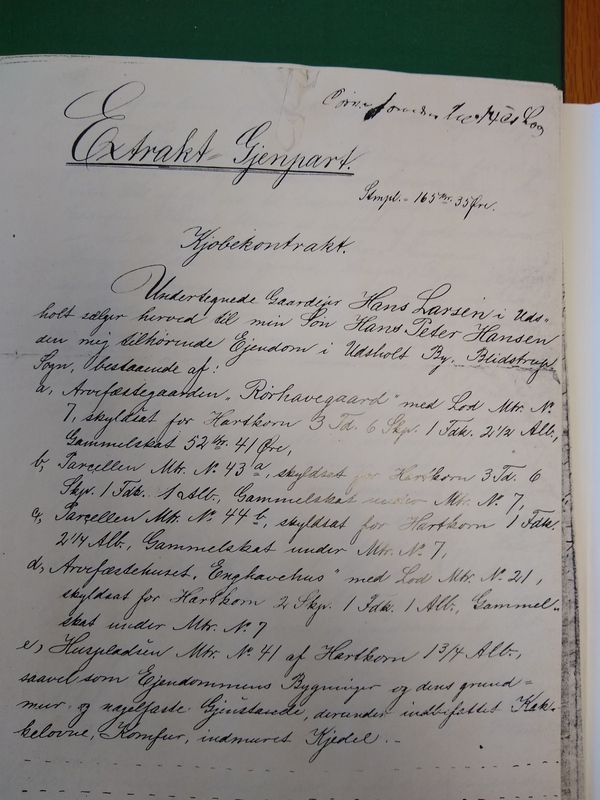 Extrakt-Gjenpart.
Stmpl. = 165 Kr. 35 Øre.
Kjøbekontrakt.
Undertegnede Gaardejer Hans Larsen i Uds-
holt sælger herved til min Søn Hans Peter Hansen
den mig tilhørende Ejendom i Udsholt By, Blidstrup
Sogn, bestaaende af:
a, Arvefæstegaarden „Rørhavegaard" med Lod Mtr. No.
7, skyldsat for Hartkorn 3 Td. 6 Skp. 1 Fdk. 2 1/2 Alb.,
Gammelskat 52 Kr. 41 Øre,
b, Parcellen Mtr. No. 43 a, skyldsat for Hartkorn 3 Td. 6
Skp. 1 Fdk. 1 Alb., Gammelskat under Mtr. No. 7,
c, Parcellen Mtr. No. 44 b, skyldsat for Hartkorn 1 Fdk.
2 1/4 Alb., Gammelskat under Mtr. No. 7,
d, Arvefæstehuset „Enghavehus" med Lod Mtr. No. 21,
skyldsat for Hartkorn 2 Skp. 1 Fdk. 1 Alb., Gammel-
skat under Mtr. No. 7
e, Huspladsen Mtr. No. 41 af Hartkorn 1 3/4 Alb.,
saavel som Ejendommens Bygninger og dens grund-
mur- og nagelfaste Gjenstande, derunder indbefattet Kak-
kelovne, Komfur, indmuret Kjedel. -